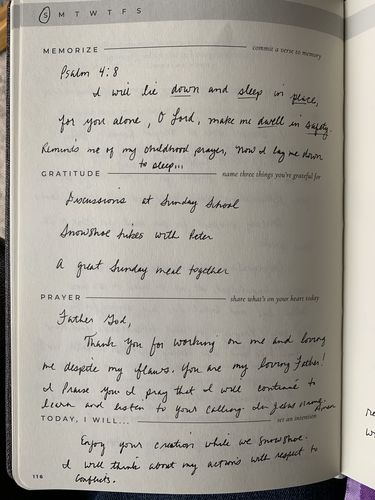 S M T W T F S
MEMORIZE commit a verse to memory
Psalm 4:8
I will lie down and sleep in place,
for you alone, O Lord, make me dwell in safety.
Reminds me of my childhood prayer, "Now I lay me down
to sleep...
GRATITUDE name three things you're grateful for
Discussions at Sunday School
Snowshoe hikes with Peter
A great Sunday meal together
PRAYER share what's on your heart today
Father God,
Thank you for working on me and loving
me despite my flaws. You are my loving Father!
I Praise You. I pray that I will continue to
learn and listen to your calling. In Jesus name. Amen
TODAY, I WILL... set an intention
Enjoy your creation while we snowshoe.
I will think about my actions with respect to
conflicts.
116